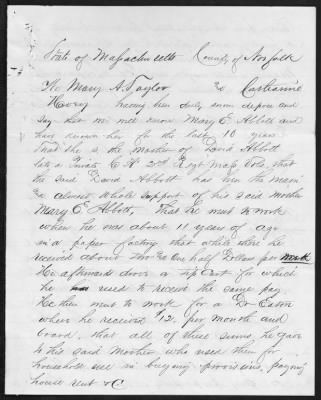 State of Massachusetts County of Norfolk
We Mary A. Taylor & Catharine
having been duly sworn depose and
say that we well know Mary E Abbott and
have known her for the last 10 years
that she is the mother of David Abbott
late a Private Co H 2nd Regt Mass Vols, that
the said David Abbott has been the main
& almost whole support of his said mother
Mary E Abbott, That he went to work
when he was about 11 years of age
in a paper factory that while there he
received about two & one half Dollars per week
He afterwards drove a tip cart for which
he used to receive the same pay.
He then went to work for a Dr Eaton
where he received $12, per month and
board, that all of these sums he gave
to his said mother who used them for
household use in buying provisions, paying
house rent &C